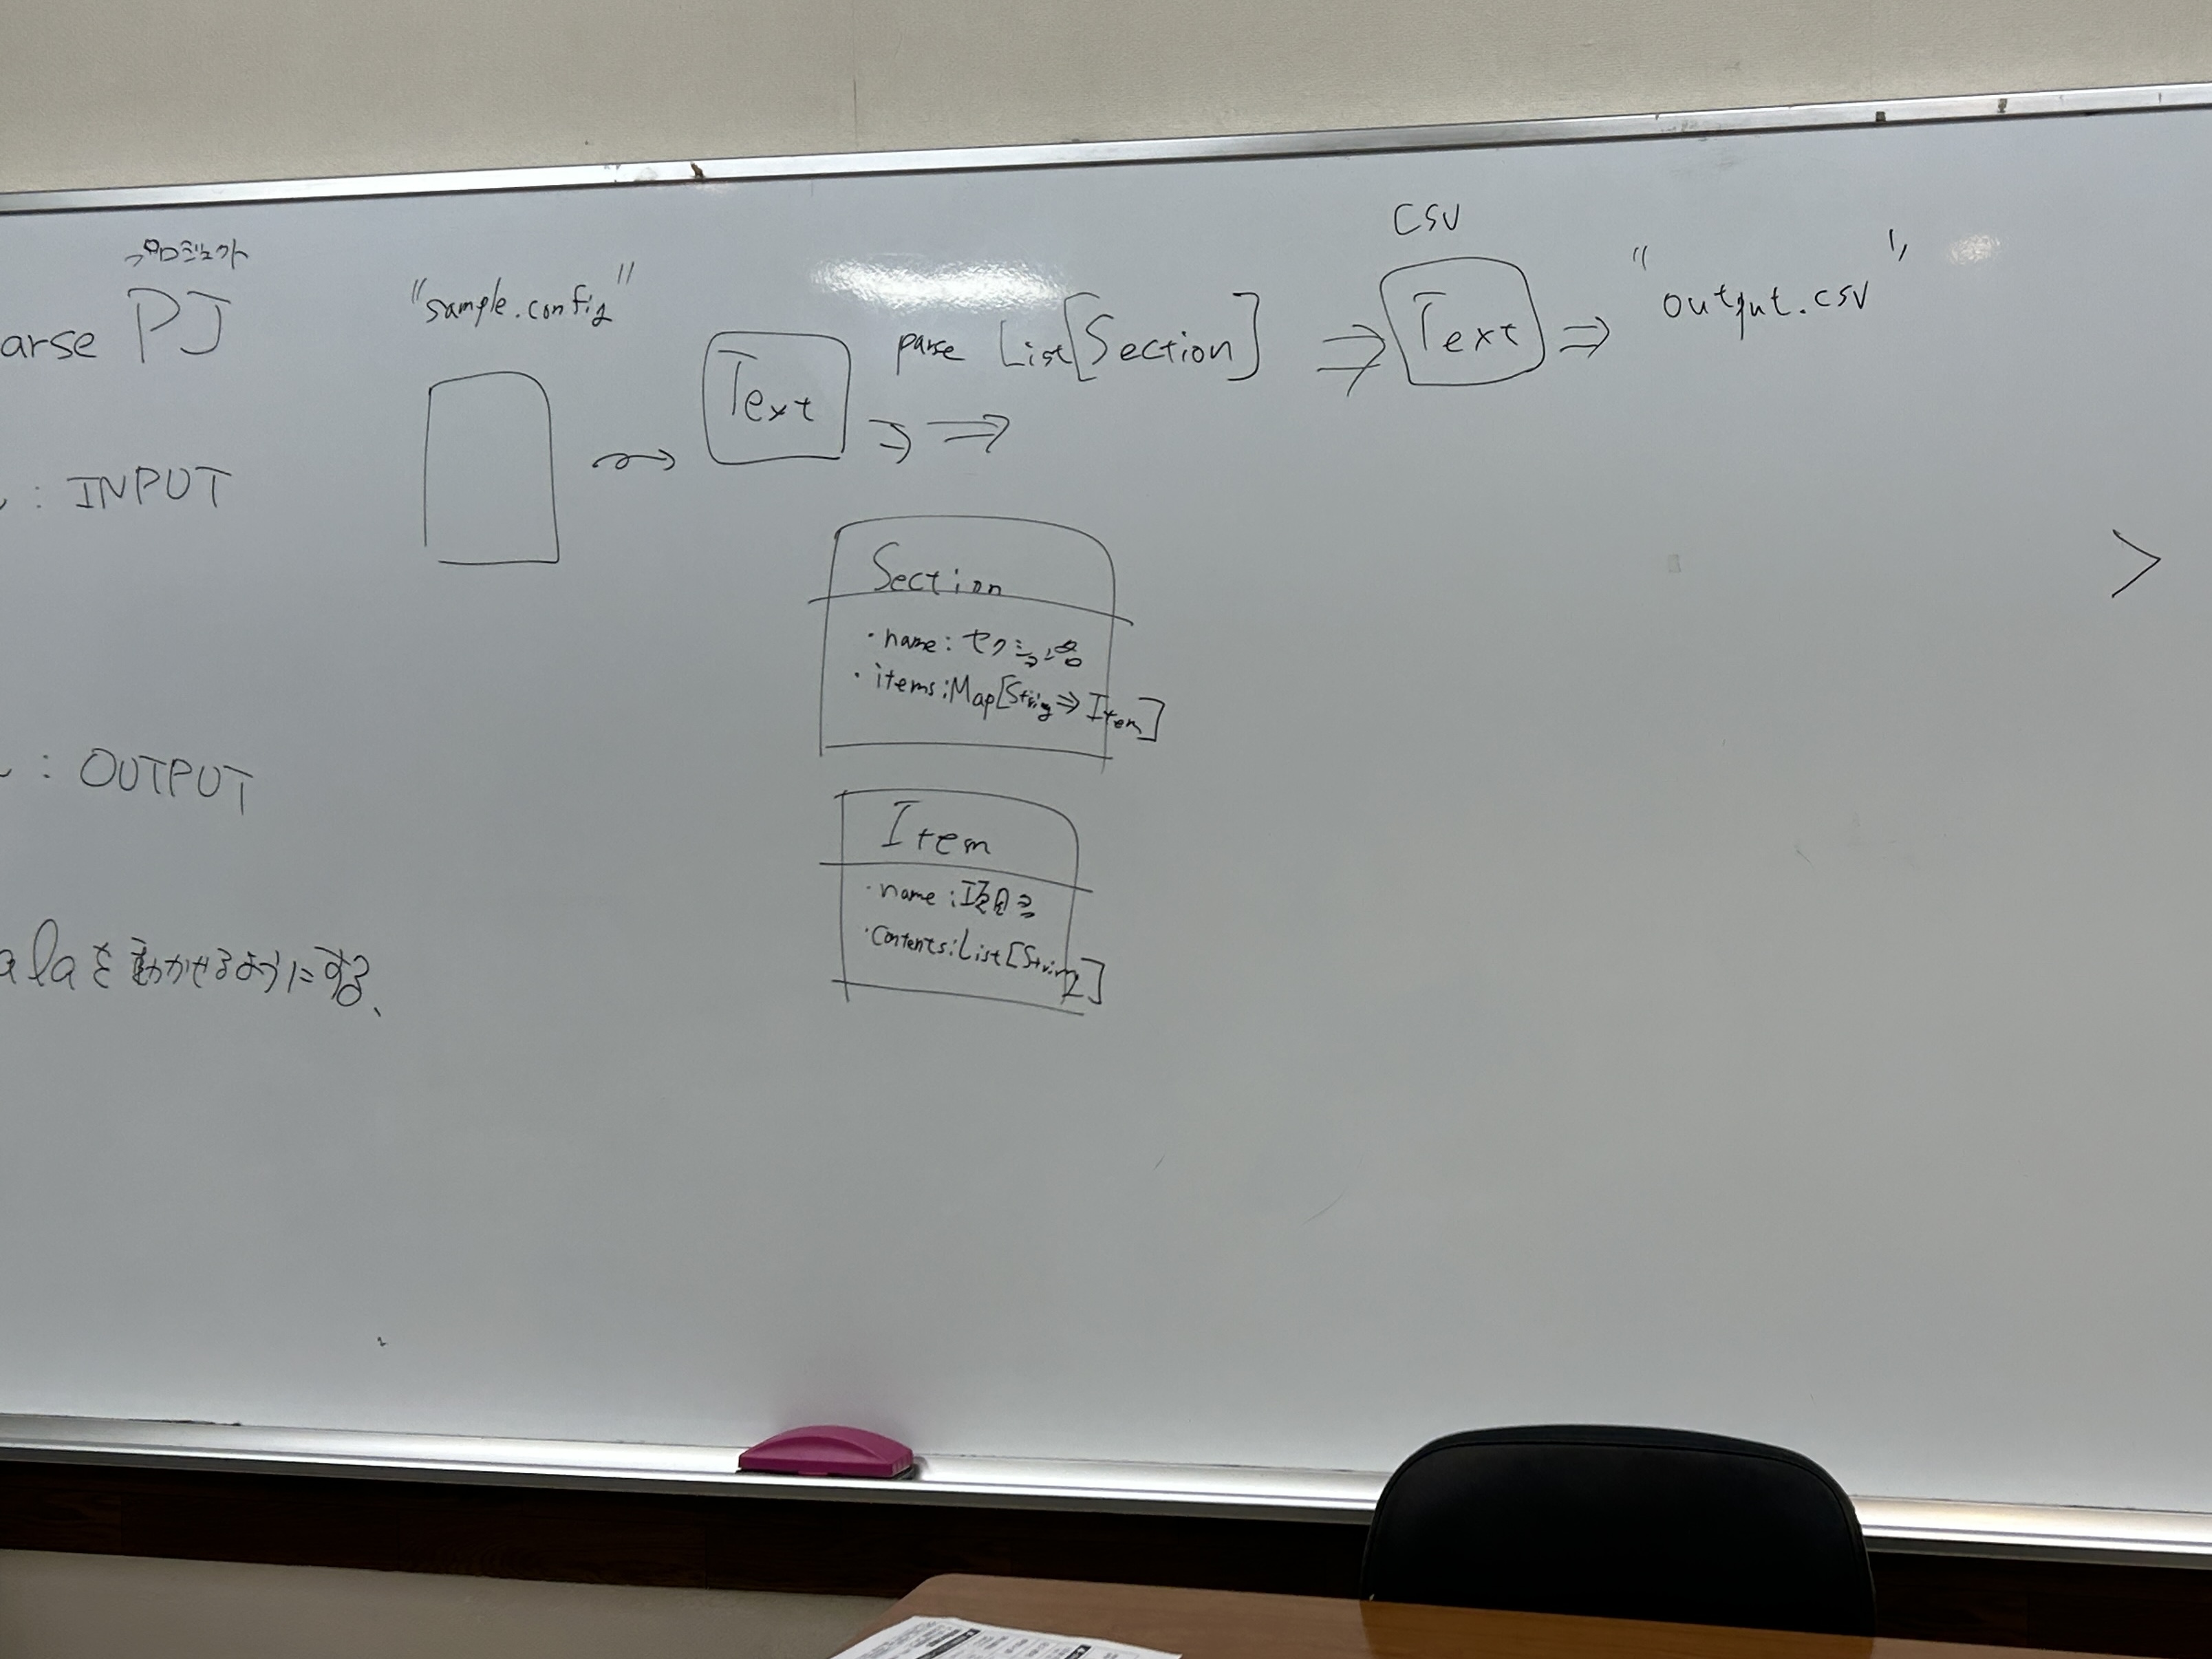 プロジェクト
arse PJ
: INPUT
: OUTPUT
alaを動かせるようにする、
"sample.config"
Text
parse List[Section]
CSV
Text
"output.csv"
Section
・name:セクション名
・items:Map[String⇒Item]
Item
・name:項目名
・contents:List[String]